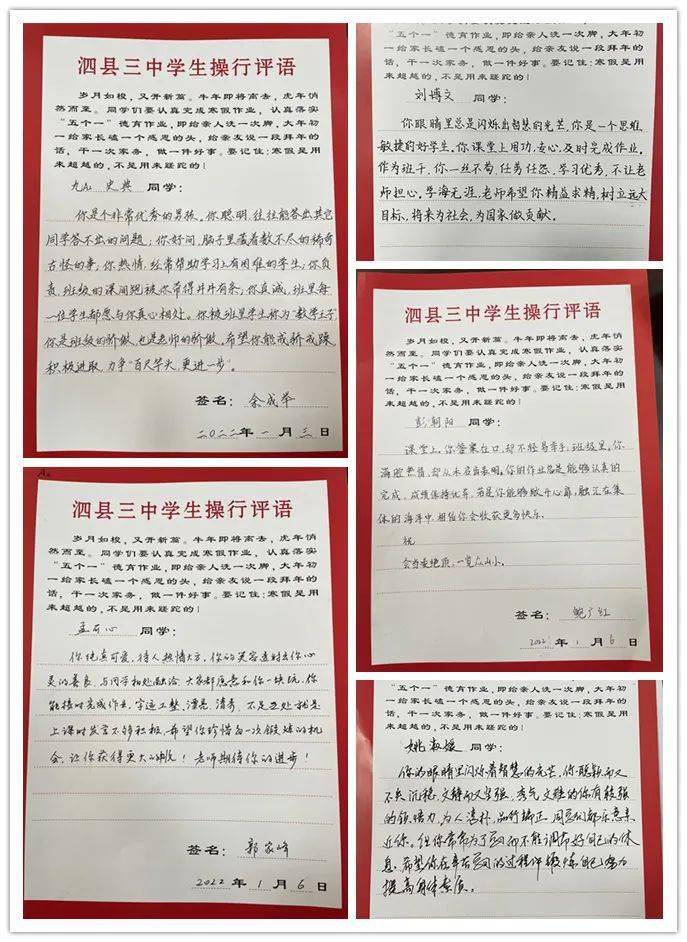 泗县三中学生操行评语
岁月如梭，又开新篇。牛年即将离去，虎年悄
然而至。同学们要认真完成寒假作业，认真落实
“五个一”德育作业，即给亲人洗一次脚，大年初
一给家长磕一个感恩的头，给亲友说一段拜年的
话，干一次家务，做一件好事。要记住：寒假是用
来超越的，不是用来蹉跎的！
九A1 史典 同学：
你是个非常优秀的男孩，你聪明，往往能答出其它
同学答不出的问题；你好问，脑子里藏着数不尽的稀奇
古怪的事；你热情，经常帮助学习上有困难的学生；你负
责，班级的课间跑被你带得井井有条，你真诚，班里每
一位学生都愿与你真心相处。你被班里学生称为“数学王子”
你是班级的骄傲，也是老师的骄傲。希望你能戒骄戒躁
积极进取，力争“百尺竿头，更进一步”。
签名：余成举
二〇二二年 一 月 三 日
A2
泗县三中学生操行评语
岁月如梭，又开新篇。牛年即将离去，虎年悄
然而至。同学们要认真完成寒假作业，认真落实
“五个一”德育作业，即给亲人洗一次脚，大年初
一给家长磕一个感恩的头，给亲友说一段拜年的
话，干一次家务，做一件好事。要记住：寒假是用
来超越的，不是用来蹉跎的！
孟可心 同学：
你纯真可爱，待人热情大方，你的笑容透射出你心
灵的善良，与同学相处融洽，大家都愿意和你一块玩，你
能按时完成作业，字迹工整，漂亮，清秀，不足之处就是
上课时发言不够积极，希望你珍惜每一次锻炼的机
会，让你获得更大的收获！老师期待你的进步！
签名：郭家峰
2022 年 1 月 6 日
“五个一”德育作业，即给亲人洗一次脚，大年初
一给家长磕一个感恩的头，给亲友说一段拜年的
话，干一次家务，做一件好事。要记住：寒假是用
来超越的，不是用来蹉跎的！
刘博文 同学：
你眼睛里总是闪烁出智慧的光芒，你是一个思维
敏捷的好学生。你课堂上用功、专心，及时完成作业。
作为班干，你一丝不苟、任劳任怨，学习优秀，不让老
师担心。学海无涯，老师希望你精益求精，树立远大
目标，将来为社会，为国家做贡献。
泗县三中学生操行评语
岁月如梭，又开新篇。牛年即将离去，虎年悄
然而至。同学们要认真完成寒假作业，认真落实
“五个一”德育作业，即给亲人洗一次脚，大年初
一给家长磕一个感恩的头，给亲友说一段拜年的
话，干一次家务，做一件好事。要记住：寒假是用
来超越的，不是用来蹉跎的！
彭朝阳 同学：
课堂上，你答案在口，却不轻易举手，班级里，你
满腔热情，却从未者表明。你的作业总是能够认真的
完成，成绩保持优异，若是你能够敞开心扉，融汇在集
体的海洋中，相信你会收获更多快乐。
祝
会当凌绝顶，一览众山小。
签名：鲍广红
2022 年 1 月 6 日
“五个一”德育作业，即给亲人洗一次脚，大年初
一给家长磕一个感恩的头，给亲友说一段拜年的
话，干一次家务，做一件好事。要记住：寒假是用
来超越的，不是用来蹉跎的！
姚淑媛 同学：
你的眼睛里闪烁着智慧的光芒，你聪颖而又
不失沉稳，文静而又坚强，秀气、文雅的你有较强
的领悟力，为人淳朴，品行端正，同学们都乐意亲
近你。但你常常为了学习而不能调节好自己的休
息，希望你在辛苦学习的过程中锻炼自己努力
提高身体素质。